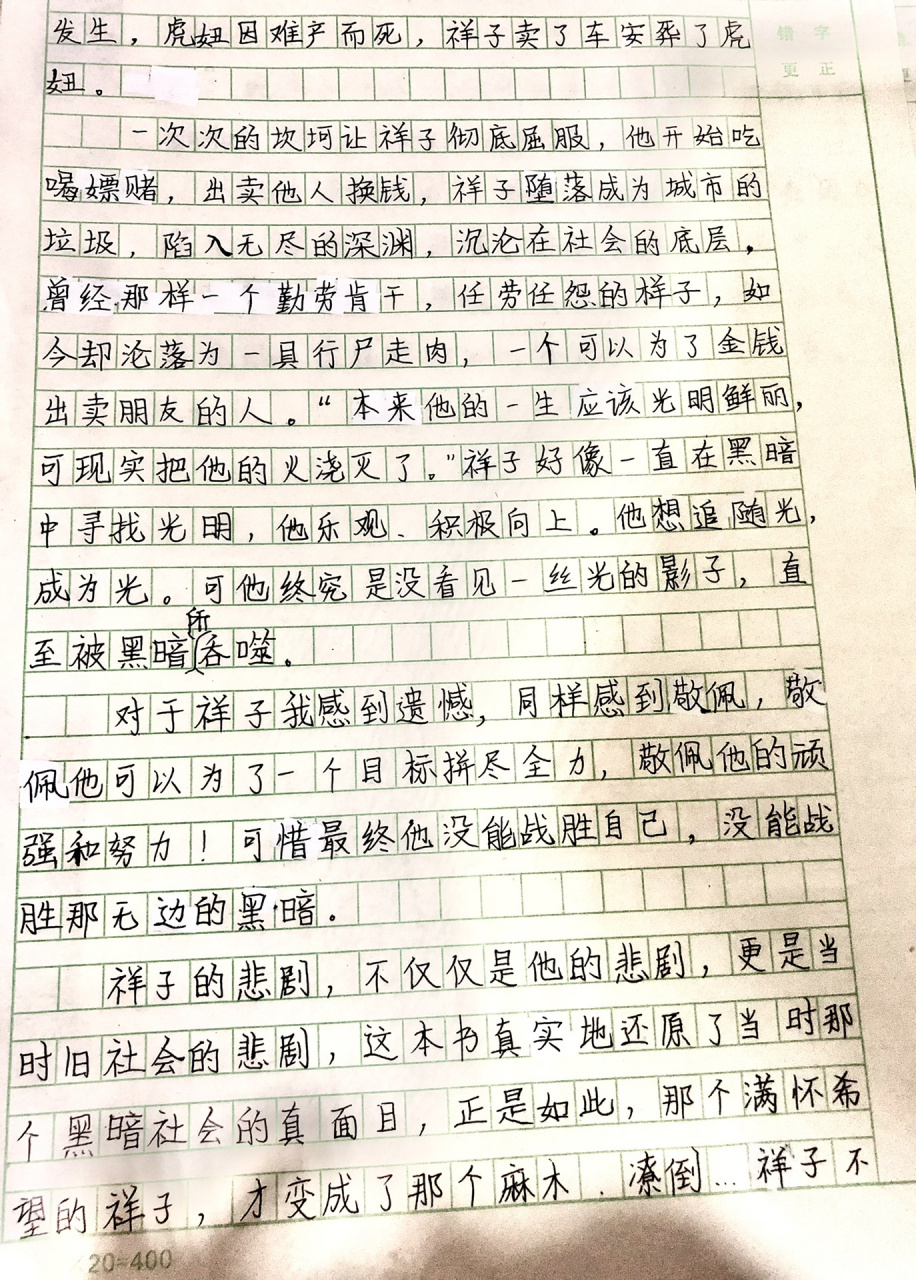 发生，虎妞因难产而死，祥子卖了车安葬了虎
错字
妞。
更正
一次次的坎坷让祥子彻底屈服，他开始吃
喝嫖赌，出卖他人换钱，祥子堕落成为城市的
垃圾，陷入无尽的深渊，沉沦在社会的底层，
曾经那样一个勤劳肯干，任劳任怨的样子，如
今却沦落为一具行尸走肉，一个可以为了金钱
出卖朋友的人。“本来他的一生应该光明鲜丽，
可现实把他的火浇灭了。”祥子好像一直在黑暗
中寻找光明，他乐观、积极向上。他想追随光，
成为光。可他终究是没看见一丝光的影子，直
至被黑暗所吞噬。
对于祥子我感到遗憾，同样感到敬佩，敬
佩他可以为了一个目标拼尽全力，敬佩他的顽
强和努力！可惜最终他没能战胜自己，没能战
胜那无边的黑暗。
祥子的悲剧，不仅仅是他的悲剧，更是当
时旧社会的悲剧，这本书真实地还原了当时那
个黑暗社会的真面目，正是如此，那个满怀希
望的祥子，才变成了那个麻木、潦倒…祥子不
20=400